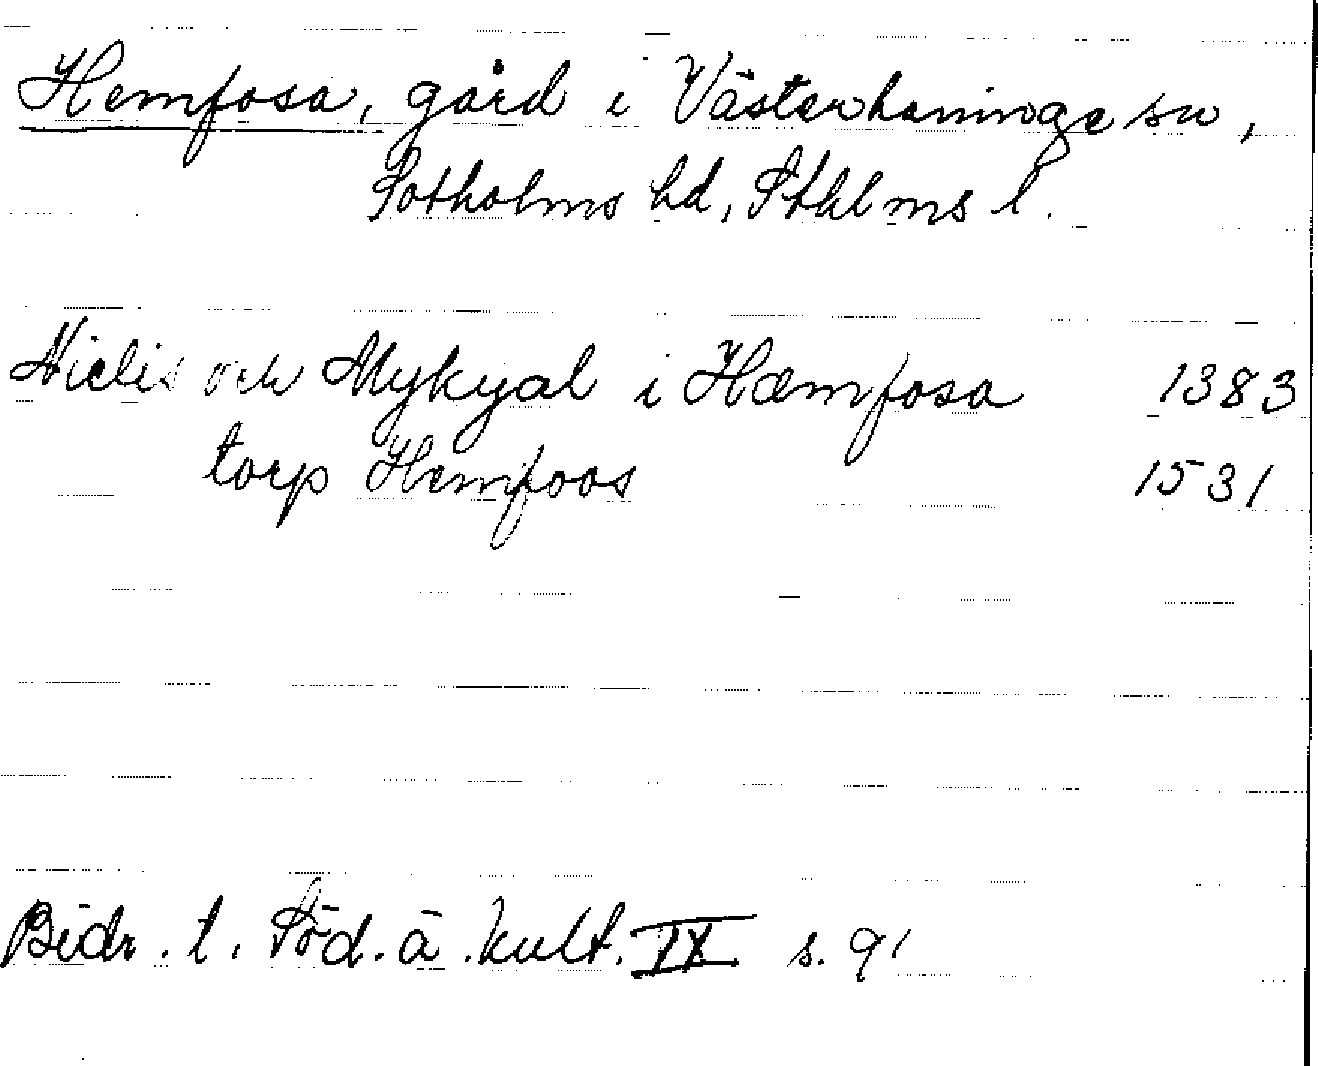 Hemfosa, gård i Västerhaninge sn,
Sotholms hd, Sthlms l.
Niclis och Mykyal i Hæmfosa 1383
torp Hemfoos 1531
Bidr. t. Söd. ä. kult. IX s. 91